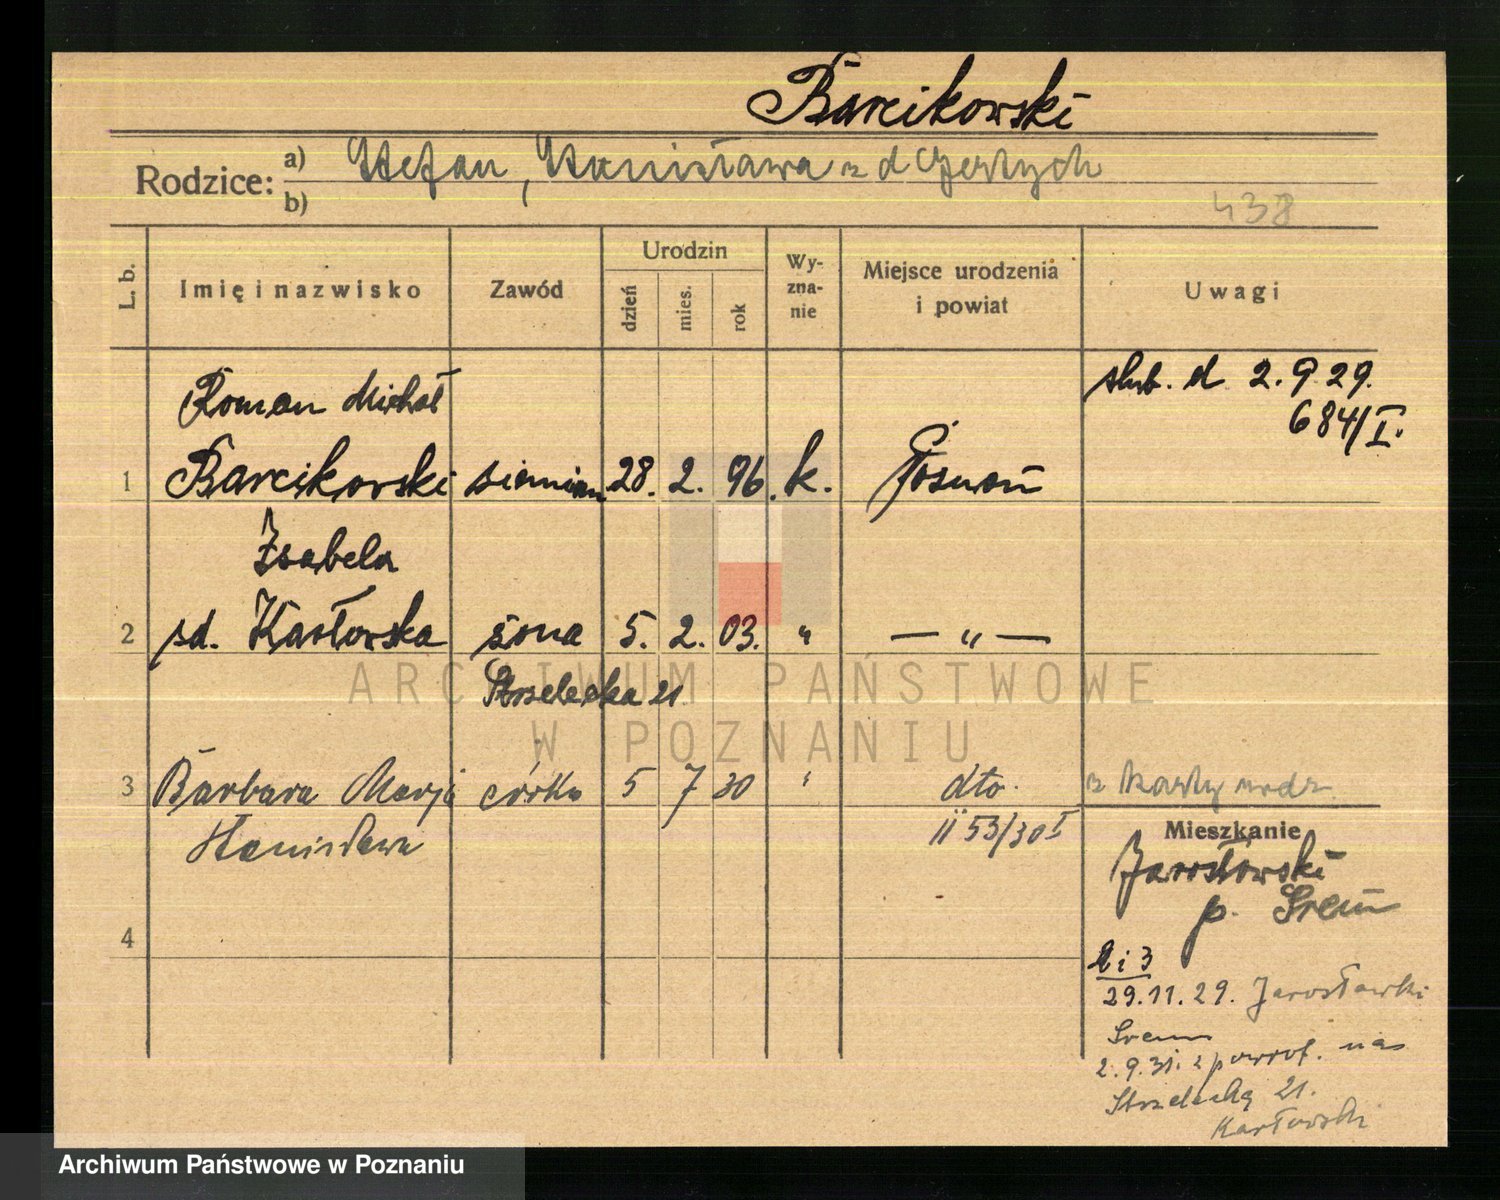 Barcikowski
Rodzice: a) Stefan, Stanisława z d Czerłych
b)
438
L. b.
Imię i nazwisko
Zawód
Urodzin
dzień
mies.
rok
Wy-
zna-
nie
Miejsce urodzenia
i powiat
Uwagi
Roman Michał
ślub. d 2.9.29.
684/I.
1 Barcikowski ziemian 28. 2. 96. k. Poznań
Izabela
2 zd. Karłowska żona 5. 2. 03. " — " —
Strzelecka 21
3 Barbara Marja córka 5 7 30 " dto. z karty urodz.
Stanisława
II 53/30 I
Mieszkanie
Jarosławski
p. Śrem
4
2 i 3
29.11.29. Jarosławki
Śrem
2.9.31. z powrot. na
Strzelecką 21.
Karłowski
ARCHIWUM PAŃSTWOWE
W POZNANIU
Archiwum Państwowe w Poznaniu